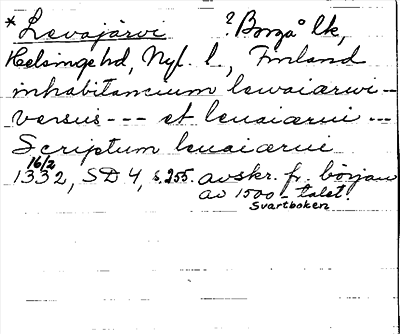 * Levajärvi ? Borgå lk,
Helsinge hd, Nyl. l., Finland
inhabitancium lewaiærwi -
versus --- et leuaiærui ---
Scriptum leuaiærui
16/2
1332, SD 4, s. 255. avskr. fr. början
av 1500-talet.
Svartboken